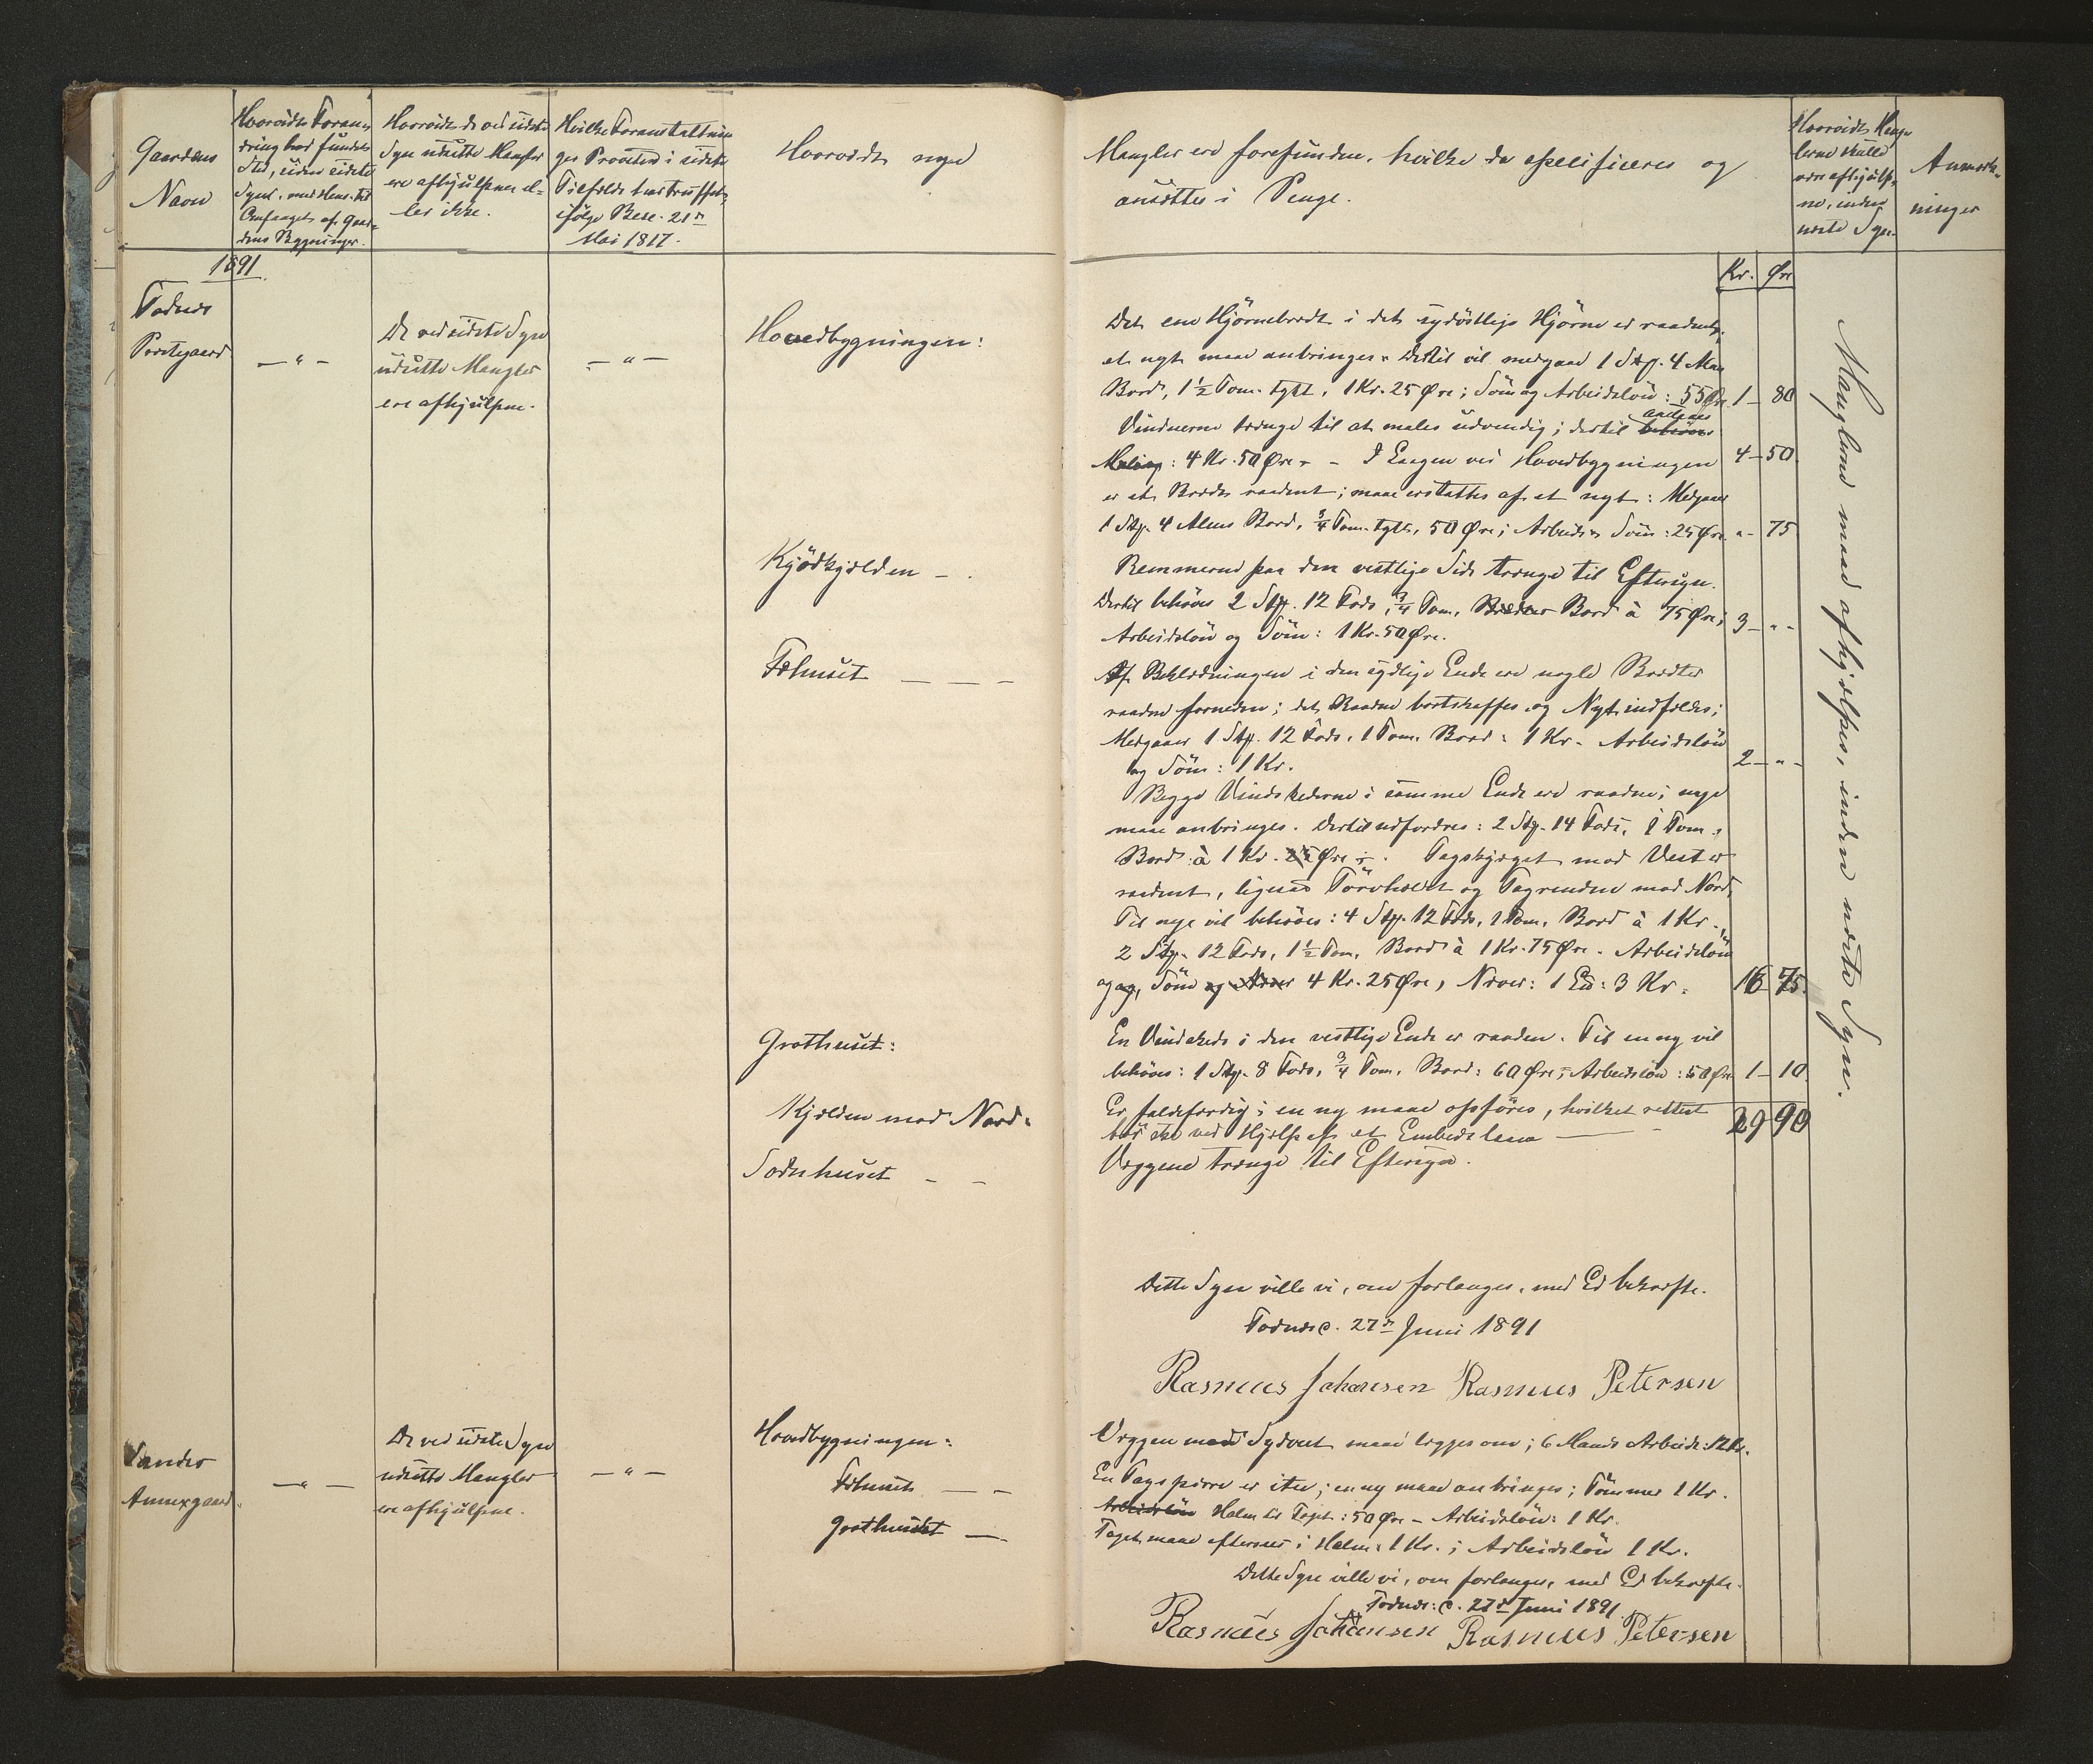 Gaardens
Navn
Hvorvidt Foran-
dring har fundet
Sted, siden sidste
Syn, med Hens. til
Omfanget af Gaar-
dens Bygninger.
Hvorvidt de ved sidste
Syn udsatte Mangler
ere afhjulpne el-
ler ikke.
Hvilke Foranstaltnin
ger Provsten i sidste
Tilfælde har truffet,
ifølge Resc. 21de
Mai 1817.
Hvorvidt nye
Mangler ere forefundne, hvilke da specificeres og
ansættes i Penge.
Hvorvidt Mang-
lerne skulle
være afhjulp-
ne, inden
næste Syn.
Anmærk-
ninger
1891
Kr. Øre
Fodnæs
Præstegaard
— " —
De ved sidste Syn
udsatte Mangler
ere afhjulpne.
— " —
Hovedbygningen:
Det ene Hjörnebrædt i det sydöstlige Hjörne er raaddent,
et nyt maa anbringes. Dertil vil medgaae 1 Stp. 4 Alen
Bord, 1½ Tom. tykt, 1 Kr. 25 Øre; Söm og Arbeidslön: 55 Øre 1 — 80
Vinduerne trænge til at males udvendig; dertil behöves
Maling: 4 Kr. 50 Øre. — I Længen ved Hovedbygningen 4 — 50
er et Brædt raaddent; maa erstattes af et nyt: Medgaaer
1 Stp. 4 Alens Bord, ¾ Tom. tykt, 50 Øre; Arbeide og Söm: 25 Øre " - 75
Kjödkjælden —
Remmerne paa den vestlige Side trænge til Eftersyn.
Dertil behöves 2 Stp. 12 Fods, ¾ Tom. Bord à 75 Øre;
Arbeidslön og Söm: 1 Kr. 50 Øre. 3 — " -
Fæhuset — — —
Af Beklædningen i den sydlige Ende ere nogle Brædter
raadne forneden; det Raadne bortskaffes og Nyt indfældes;
Medgaaer 1 Stp. 12 Fods, 1 Tom. Bord: 1 Kr. Arbeidslön
og Söm: 1 Kr. 2 — " -
Begge Vindskederne i samme Ende ere raadne; nye
maa anbringes. Dertil udfordres: 2 Stp. 14 Fods, 1 Tom.
Bord à 1 Kr. 25 Øre. Tagskjægget mod Vest er
raaddent, ligesaa Törvholdet og Tagrenden mod Nord.
Til nye vil behöves: 4 Stp. 12 Fods, 1 Tom. Bord à 1 Kr.
2 Stp. 12 Fods, 1½ Tom. Bord à 1 Kr. 75 Øre. Arbeidslön
og Söm og Næver 4 Kr. 25 Øre, Næver: 1 : 3 Kr. 16 75.
Grothuset:
En Vindskede i den vestlige Ende er raaden. Til en ny vil
behöves: 1 Stp. 8 Fods, ¾ Tom. Bord: 60 Øre; Arbeidslön: 50 Øre 1 — 10
Kjælden mod Nord.
Er faldefærdig; en ny maa opföres, hvilket rettest
bör ske ved Hjælp af et Embedslaan — 29 90
Sodnhuset — —
Væggene trænge til Eftersyn.
Manglerne maae afhjælpes, inden næste Syn.
Dette Syn ville vi, om forlanges, med Ed bekræfte.
Fodnæs c. 27de Juni 1891
Rasmus Johansen Rasmus Petersen
Sandes
Annexgaard
— " —
De ved sidste Syn
udsatte Mangler
ere afhjulpne.
— " —
Hovedbygningen:
Væggen mod Sydvest maa lægges om; 6 Mands Arbeide: 12 Kr.
Fæhuset — —
En Tagsparre er itu; en ny maa anbringes; Tömmer 1 Kr.
Arbeidslön Halm til Taget: 50 Øre — Arbeidslön: 1 Kr.
Grothuset —
Taget maa eftersees; Halm: 1 Kr.; Arbeidslön 1 Kr.
Dette Syn ville vi, om forlanges, med Ed bekræfte.
Fodnæs: c. 27de Juni 1891
Rasmus Johansen Rasmus Petersen